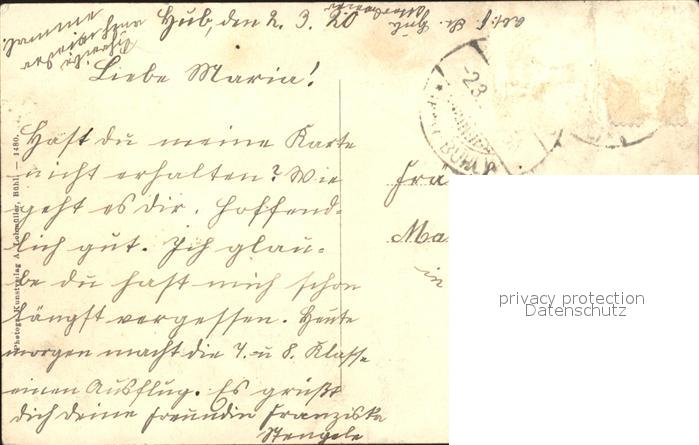 Hub, den 2. 3. 20
Liebe Maria!
Hast du meine Karte
nicht erhalten? Wie
geht es dir. Hoffend-
lich gut. Ich glau-
be du hast mich schon
längst vergessen. Heute
morgen macht die 7. u 8. Klasse
einen Ausflug. Es grüßt
dich deine Freundin Franziska
Stengele
Photogr. Kunstverlag A. Lohmüller, Bühl. — 1480.
-2.3.
BÜHL
Fra
Ma
in
privacy protection
Datenschutz